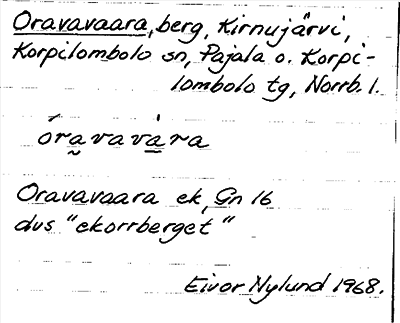 Oravavaara, berg, Kirnujärvi,
Korpilombolo sn, Pajala o. Korpi-
lombolo tg, Norrb. l.
óra̰vavà̱ra
Oravavaara ek, Gn 16
dvs "ekorrberget"
Eivor Nylund 1968.